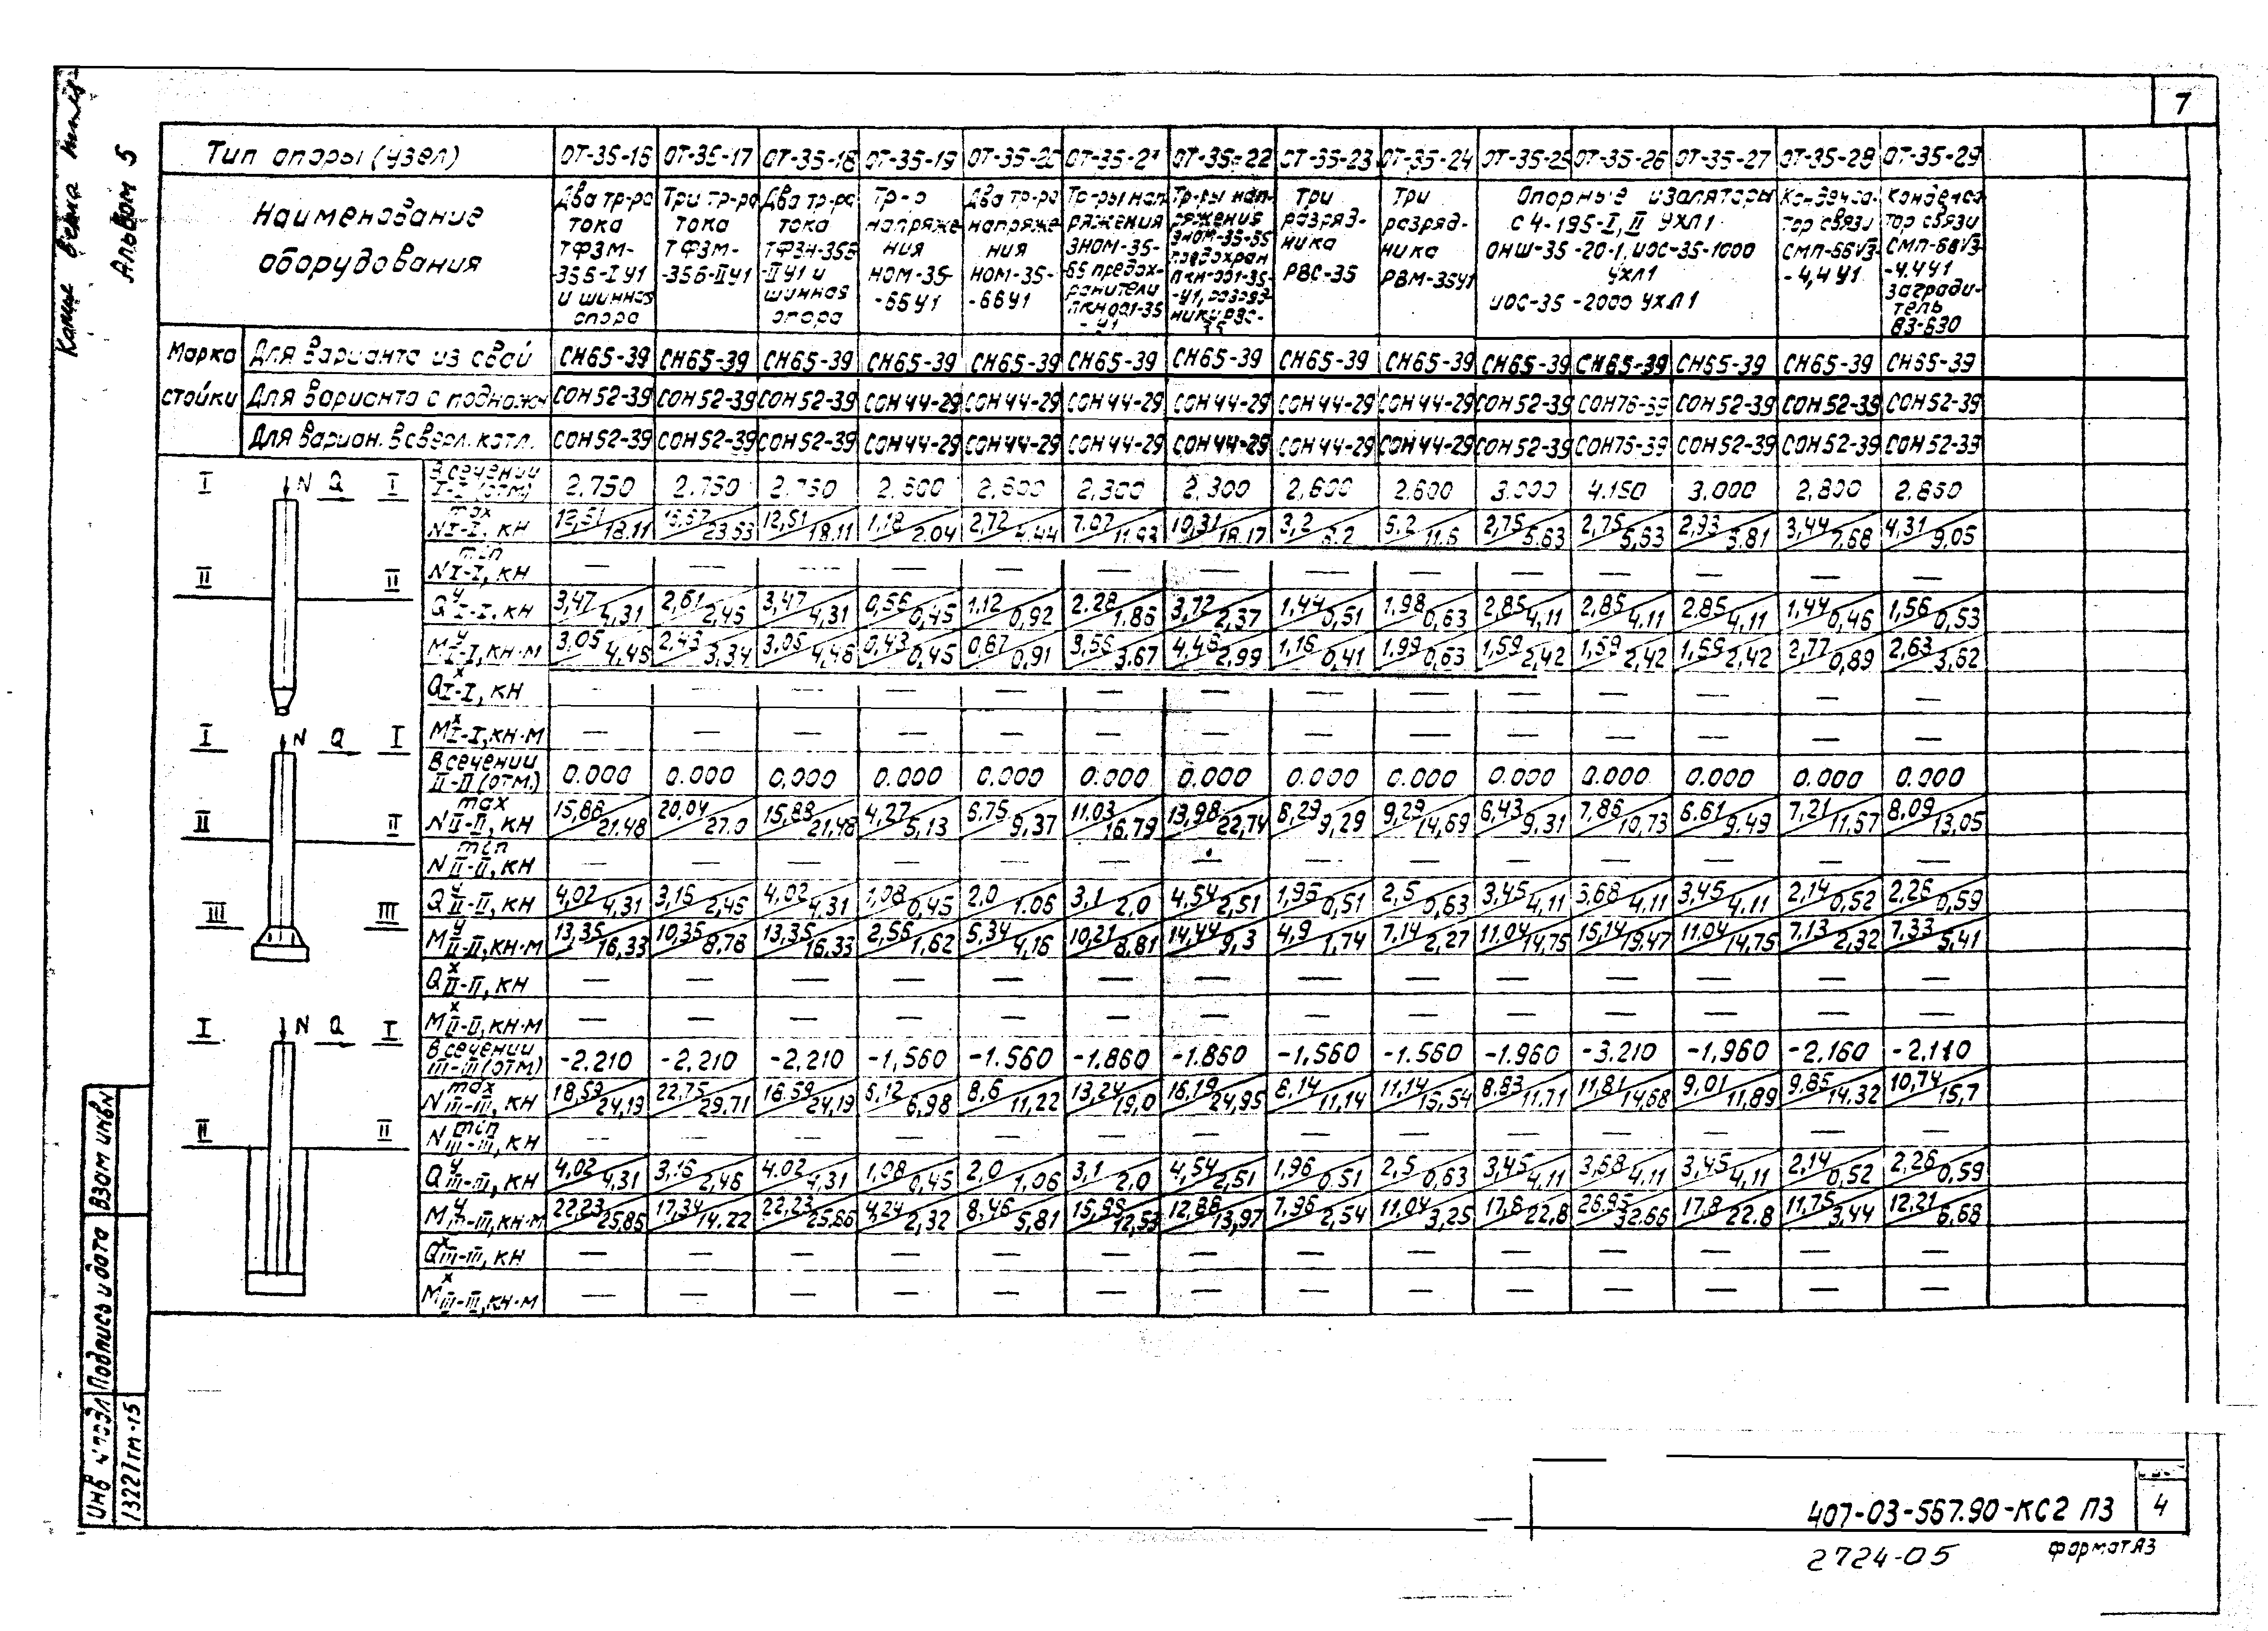 7
Альбом 5
Тип опоры (узел) ОТ-35-16 ОТ-35-17 ОТ-35-18 ОТ-35-19 ОТ-35-20 ОТ-35-21 ОТ-35-22 ОТ-35-23 ОТ-35-24 ОТ-35-25 ОТ-35-26 ОТ-35-27 ОТ-35-28 ОТ-35-29
Наименование оборудования
Два тр-ра тока ТФЗМ-35Б-I У1 и шинная опора
Три тр-ра тока ТФЗМ-35Б-II У1
Два тр-ра тока ТФЗН-35Б-II У1 и шинная опора
Тр-р напряжения НОМ-35-66У1
Два тр-ра напряжения НОМ-35-66У1
Тр-ры напряжения ЗНОМ-35-65 предохранители ПКН001-35-У1
Тр-ры напряжения ЗНОМ-35-65 предохран ПКН-001-35-У1, разрядники РВС-35
Три разрядника РВС-35
Три разрядника РВМ-35У1
Опорные изоляторы С4-195-I, II УХЛ1 ОНШ-35-20-1, ИОС-35-1000 УХЛ1 ИОС-35-2000 УХЛ1
Конденсатор связи СМП-66√3-4,4 У1
Конденсатор связи СМП-66√3-4,4У1 заградитель ВЗ-630
Марка стойки
Для варианта из свай СН65-39 СН65-39 СН65-39 СН65-39 СН65-39 СН65-39 СН65-39 СН65-39 СН65-39 СН65-39 СН65-39 СН65-39 СН65-39 СН65-39
Для варианта с поднож. СОН52-39 СОН52-39 СОН52-39 СОН44-29 СОН44-29 СОН44-29 СОН44-29 СОН44-29 СОН44-29 СОН52-39 СОН76-39 СОН52-39 СОН52-39 СОН52-39
Для вариан. в сверл. котл. СОН52-39 СОН52-39 СОН52-39 СОН44-29 СОН44-29 СОН44-29 СОН44-29 СОН44-29 СОН44-29 СОН52-39 СОН76-39 СОН52-39 СОН52-39 СОН52-39
В сечении I-I (отм) 2.750 2.750 2.750 2.600 2.600 2.300 2.300 2.600 2.600 3.000 4.150 3.000 2.800 2.850
N max I-I, кН 12,51/18.11 16,67/23.63 12,51/18.11 1,18/2.04 2,72/4.44 7.07/11.93 10,31/18.17 3,2/6.2 5.2/11.6 2,75/5.63 2,75/5,63 2,93/5.81 3,44/7.68 4,31/9,05
N min I-I, кН — — — — — — — — — — — — — —
Q у I-I, кН 3,47/4,31 2,61/2,46 3,47/4,31 0,56/0,45 1.12/0,92 2.28/1.86 3,72/2,37 1,44/0,51 1,98/0,63 2,85/4,11 2,85/4,11 2,85/4,11 1,44/0,46 1,56/0,53
М у I-I, кН·м 3,05/4,46 2,43/3,34 3,05/4,46 0,43/0,45 0,67/0,91 3,56/3.67 4,46/2,99 1,16/0,41 1,99/0,63 1,59/2,42 1,59/2,42 1,59/2,42 2,77/0,89 2,63/3,62
Q х I-I, кН — — — — — — — — — — — — — —
М х I-I, кН·м — — — — — — — — — — — — — —
В сечении II-II (отм.) 0.000 0.000 0,000 0.000 0.000 0.000 0.000 0.000 0.000 0.000 0.000 0.000 0.000 0.000
N max II-II, кН 15,88/21.48 20,04/27.0 15,88/21,48 4,27/5,13 6.75/9,37 11.03/16.79 13,98/22,74 6,29/9,29 9,29/14,69 6,43/9,31 7,86/10,73 6.61/9.49 7,21/11,67 8,09/13,05
N min II-II, кН — — — — — — — — — — — — — —
Q у II-II, кН 4,02/4,31 3,16/2,46 4,02/4,31 1,08/0,45 2,0/1.06 3,1/2,0 4,54/2,51 1,96/0,51 2,5/0,63 3,45/4,11 3,68/4,11 3,45/4,11 2,14/0,52 2,26/0,59
М у II-II, кН·м 13,35/16,33 10,35/8,78 13,35/16,33 2,56/1,62 5,34/4,16 10,21/8,81 14,44/9,3 4,9/1,74 7,14/2,27 11.04/14,75 15,14/19,47 11,04/14,75 7,13/2,32 7,33/5,41
Q х II-II, кН — — — — — — — — — — — — — —
М х II-II, кН·м — — — — — — — — — — — — — —
В сечении III-III (отм) -2.210 -2,210 -2,210 -1,560 -1.560 -1.860 -1.860 -1,560 -1.560 -1.960 -3.210 -1,960 -2,160 -2,110
N max III-III, кН 18,59/24,19 22,75/29.71 18,59/24,19 6,12/6,98 8,6/11,22 13,24/19,0 16,19/24,95 8,14/11,14 11,14/16,54 8.83/11.71 11,81/14,68 9,01/11,89 9,85/14,32 10,74/15,7
N min III-III, кН — — — — — — — — — — — — — —
Q у III-III, кН 4,02/4,31 3,16/2,46 4,02/4,31 1,08/0,45 2,0/1,06 3,1/2,0 4,54/2,51 1,96/0,51 2,5/0,63 3,45/4,11 3,68/4,11 3,45/4,11 2,14/0,52 2,26/0,59
М у III-III, кН·м 22,23/25,86 17,34/14.22 22,23/25,86 4,24/2,32 8,46/5,81 15,95/12,53 12,86/13,97 7,96/2,54 11,04/3,25 17,8/22,8 26,95/32,66 17,8/22.8 11,75/3,44 12,21/6,68
Q х III-III, кН — — — — — — — — — — — — — —
М х III-III, кН·м — — — — — — — — — — — — — —
I N Q I
II II
I N Q I
II II
III III
I N Q I
II II
Взам инв N
Подпись и дата
Инв N подл
13227тм-15
407-03-567.90-КС2 ПЗ
4
2724-05
Формат А3